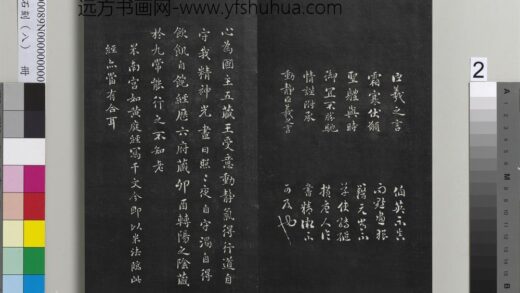 远方书画网-www.yfshuhua.com
臣羲之言
霜寒伏願
聖體與時
御宜不勝馳
情謹附承
動靜臣羲之言
伯英不真
而點畫狼
藉元常不
草使轉縱
横唐人
書精
心為國主五藏王受意動靜氣得行道自
守我精神光晝日照照夜自守渴自得
飲飢自飽經歷六府藏卯酉轉陽之陰藏
於九常能行之不知老
米南宮如黃庭經寫千文今即以米法臨此
經亦當有合耳
2